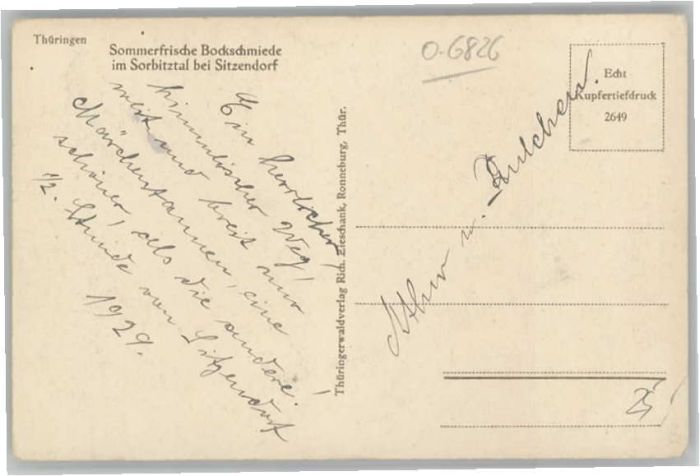 Thüringen
Sommerfrische Bockschmiede
im Sorbitztal bei Sitzendorf
0-6826
Echt
Kupfertiefdruck
2649
Ein herrlicher,
himmlischer Weg!
weit und breit nur
Märchentannen, eine
schöner, als die andere.
1/2. Stunde von Sitzendorf
1929.
Thüringerwaldverlag Rich. Zieschank, Ronneburg, Thür.
u.
25